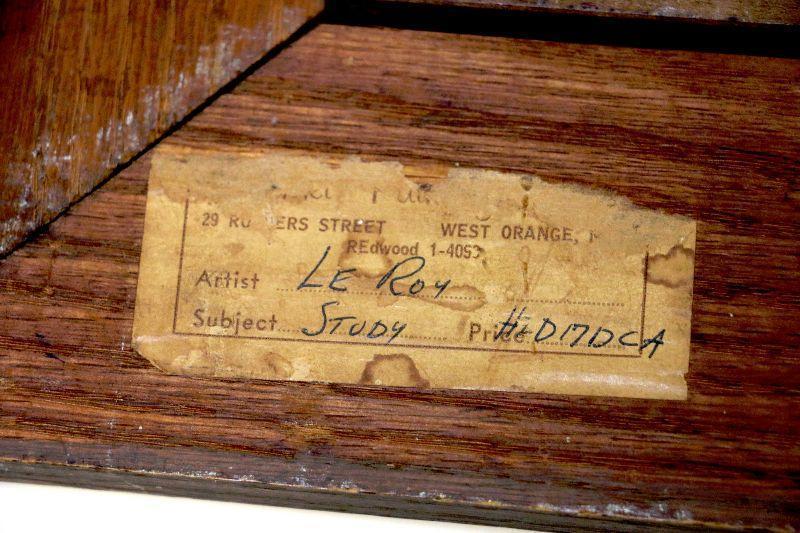 29 RU ERS STREET WEST ORANGE,
REdwood 1-4093
Artist LE ROY
Subject STUDY Price H-D17DCA